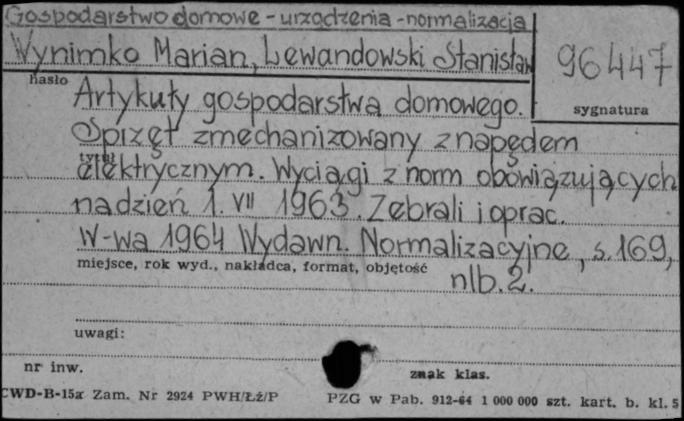 Gospodarstwo domowe - urządzenia - normalizacja
Wynimko Marian, Lewandowski Stanisław
96447
hasło
sygnatura
Artykuły gospodarstwa domowego.
Sprzęt zmechanizowany z napędem
tytuł
elektrycznym. Wyciągi z norm obowiązujących
na dzień 1. VII 1963. Zebrali i oprac.
W-wa 1964 Wydawn. Normalizacyjne, s. 169,
miejsce, rok wyd., nakładca, format, objętość
nlb. 2.
uwagi:
nr inw.
znak klas.
CWD-B-15a Zam. Nr 2924 PWH/Łź/P
PZG w Pab. 912-64 1 000 000 szt. kart. b. kl. 5